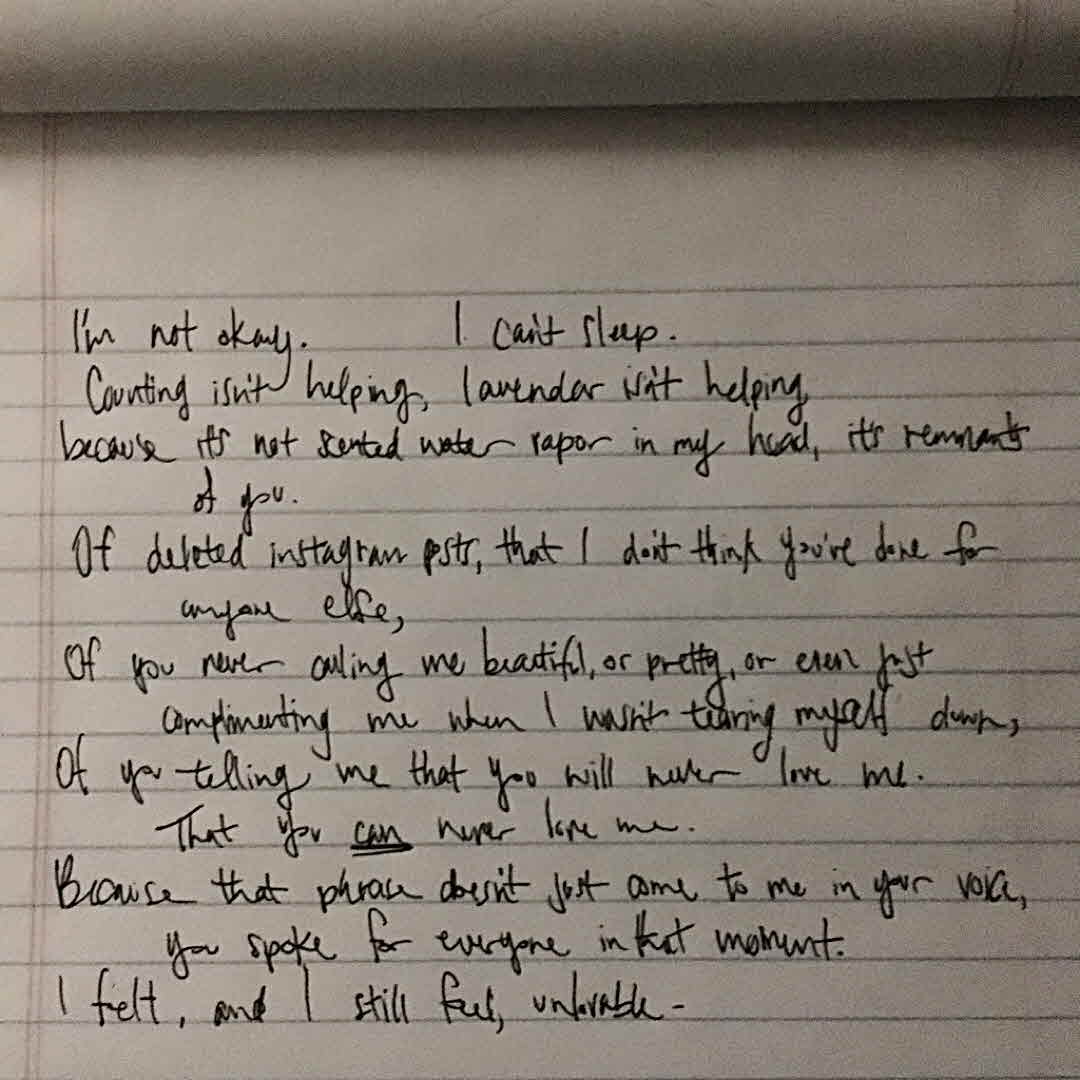 I'm not okay. I can't sleep.
Counting isn't helping, lavendar isn't helping
because it's not scented water vapor in my head, it's remnants
of you.
Of deleted instagram posts, that I don't think you've done for
anyone else,
Of you never calling me beautiful, or pretty, or even just
complimenting me when I wasn't tearing myself down,
Of you telling me that you will never love me.
That you can never love me.
Because that phrase doesn't just come to me in your voice,
you spoke for everyone in that moment.
I felt, and I still feel, unlovable-